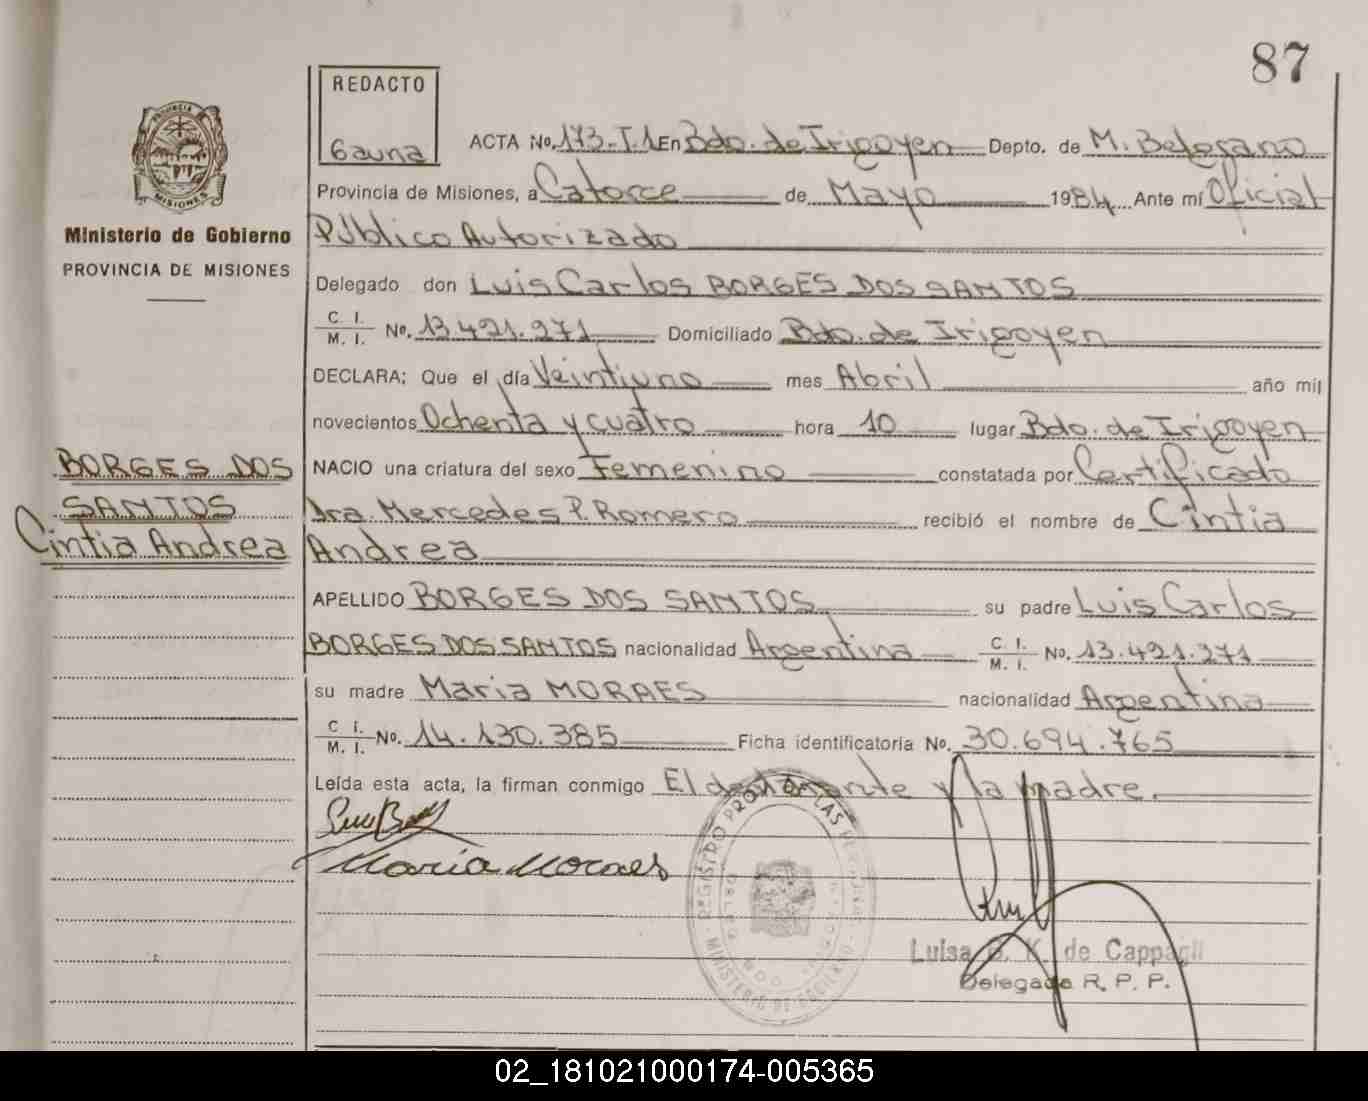 87
REDACTO
Gauna
ACTA No. 173-T.1 En Bdo. de Irigoyen Depto. de M. Belgrano
Provincia de Misiones, a Catorce de Mayo 1984 Ante mí Oficial
Público Autorizado
Delegado don Luis Carlos BORGES DOS SANTOS
C. I.
M. I. No. 13.421.271 Domiciliado Bdo. de Irigoyen
DECLARA: Que el día Veintiuno mes Abril año mil
novecientos Ochenta y cuatro hora 10 lugar Bdo. de Irigoyen
NACIO una criatura del sexo Femenino constatada por Certificado
Dra. Mercedes P. Romero recibió el nombre de Cintia
Andrea
APELLIDO BORGES DOS SANTOS su padre Luis Carlos
BORGES DOS SANTOS nacionalidad Argentina C. I.
M. I. No. 13.421.271
su madre Maria MORAES nacionalidad Argentina
C. I.
M. I. No. 14.130.385 Ficha identificatoria No. 30.694.765
Leída esta acta, la firman conmigo El declarante y la madre.
Maria Moraes
PROVINCIA
MISIONES
Ministerio de Gobierno
PROVINCIA DE MISIONES
BORGES DOS
SANTOS
Cintia Andrea
REGISTRO PROV. DE LAS PERSONAS
MINISTERIO DE GOBIERNO
Luisa G. K. de Cappagli
Delegada R. P. P.
02_181021000174-005365